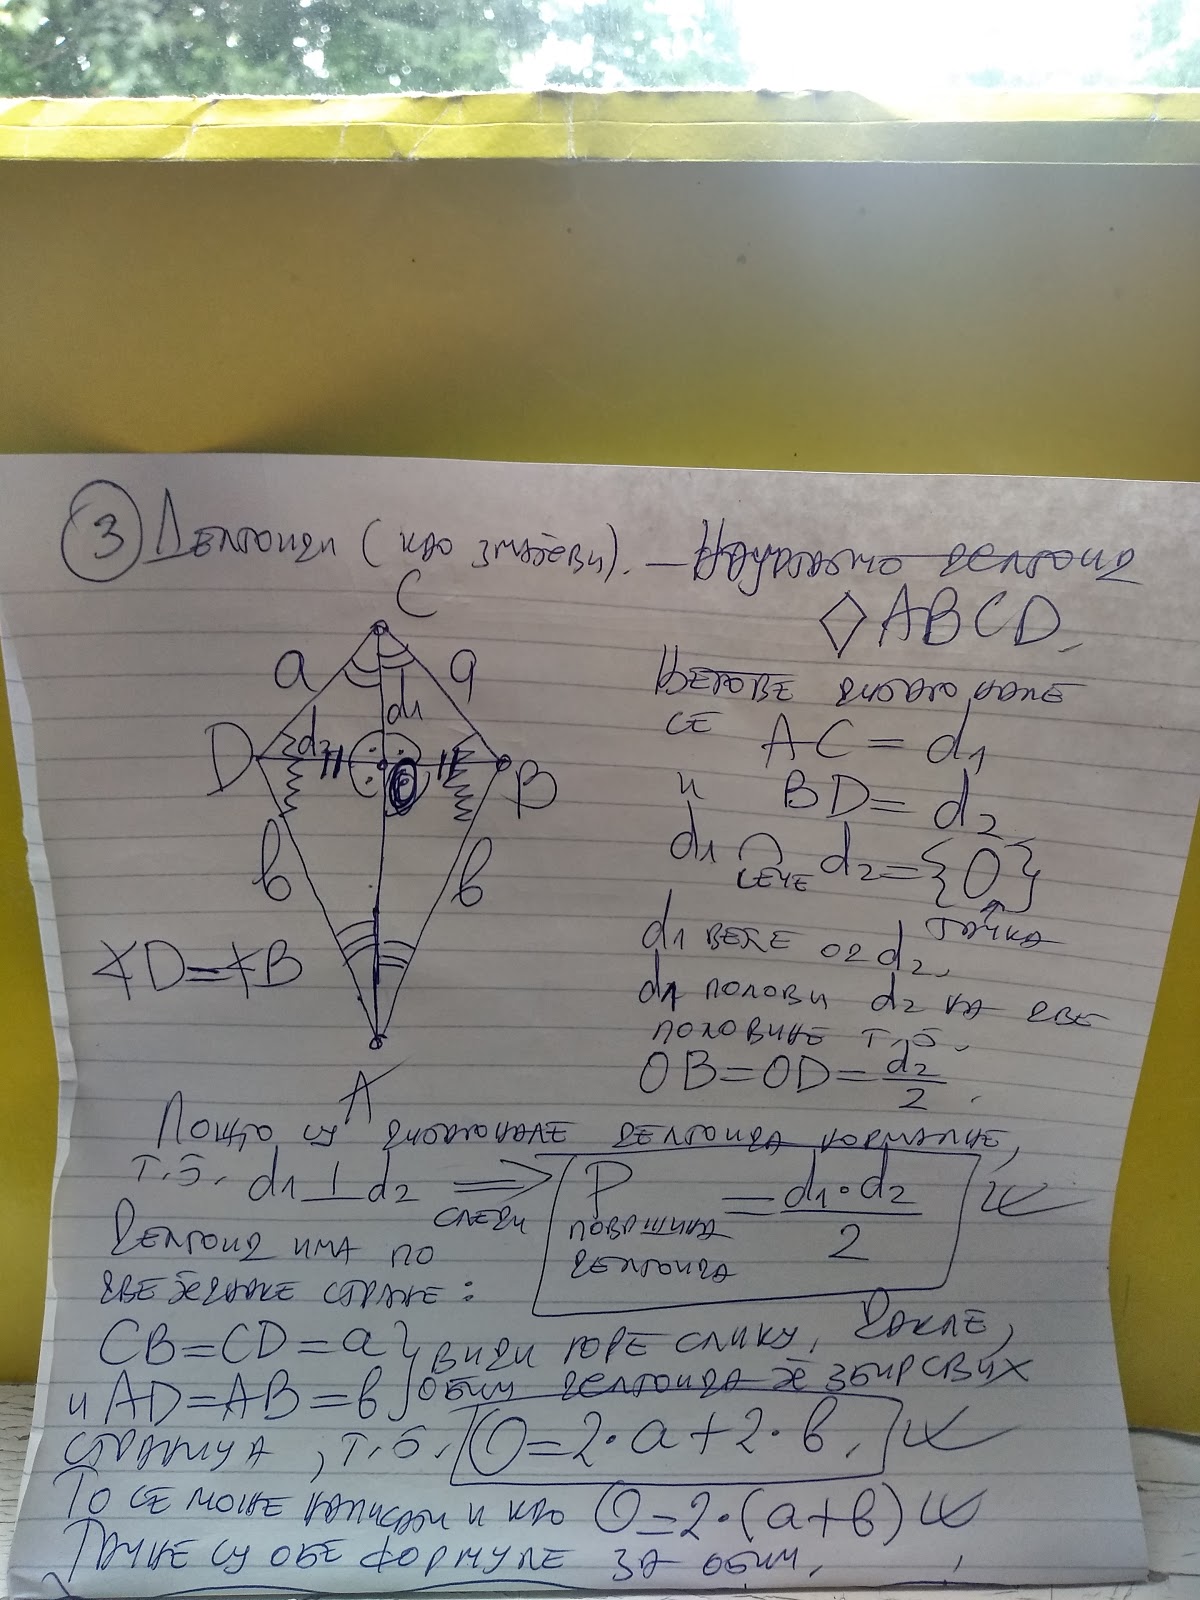 3 Делтоиди (као змајеви). — Нацртајмо делтоид
◊ABCD.
C
a a
d1
D d2 B
b b
∢D=∢B
A
Његове дијагонале
се AC = d1
и BD = d2
d1 ∩ d2 = {O}
сече
тачка
d1 веће од d2.
d1 полови d2 на две
половине т.ј.
OB=OD=d2/2.
Пошто су дијагонале делтоида нормалне,
т.ј. d1⊥d2 => P = d1·d2/2
следи
површина
делтоида
Делтоид има по
две једнаке стране:
CB=CD=a } види горе слику, Дакле,
и AD=AB=b } обим делтоида је збир свих
страница, т.ј. O=2·a+2·b.
То се може написати и као O=2·(a+b)
Тачне су обе формуле за обим.